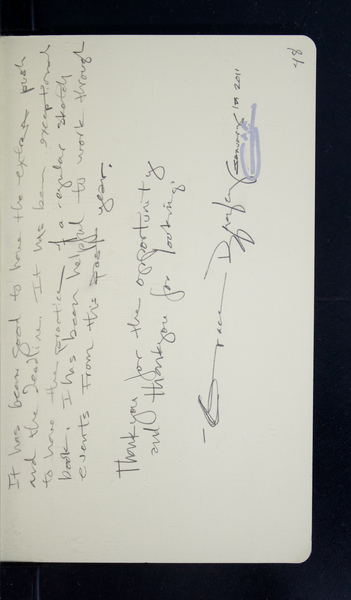 It has been good to have the extra push
and the Deadline. It has been exceptional
to have the practice of a regular sketch
book. I has been helpful to work through
events from this past year.
Thankyou for the opportunity
and thankyou for looking!
- Grace
January 1st 2011
48